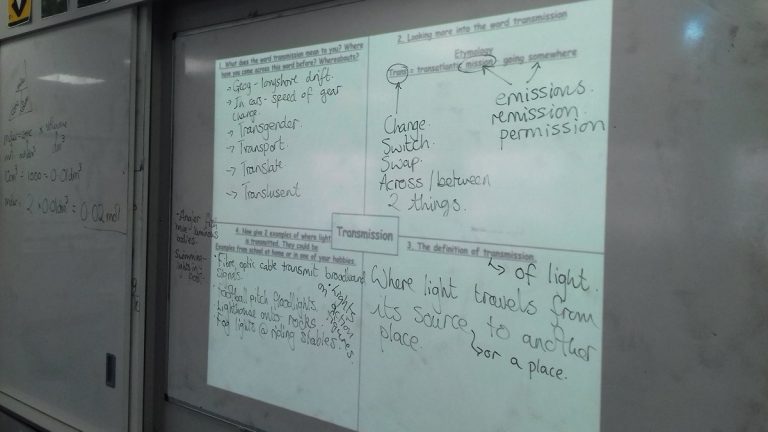 1. What does the word transmission mean to you? Where
have you come across this word before? Whereabouts?
→ Geog - longshore drift.
→ In cars - speed of gear
change.
→ Transgender.
→ Transport
→ Translate
→ Translusent
2. Looking more into the word transmission
Etymology
Trans = transatlantic mission = going somewhere
emissions.
remission.
permission
Change.
Switch.
Swap.
Across/between
2 things.
Transmission
3. The definition of transmission.
↳ of light.
Where light travels from
its source to another
place.
↳ or a place.
4. Now give 2 examples of where light
is transmitted. They could be
Examples from school at home or in one of your hobbies.
Fibre optic cable transmit broadband
signs.
football pitch floodlights.
Lighthouse onto rocks.
Fog lights @ riding stables.
lights
on
action
figures.
- Angler fish
luminous
bodies.
- Swimming
lights in
pool.
10cm³ ÷ 1000 = 0.01dm³
2 × 0.01dm³ = 0.02 mol